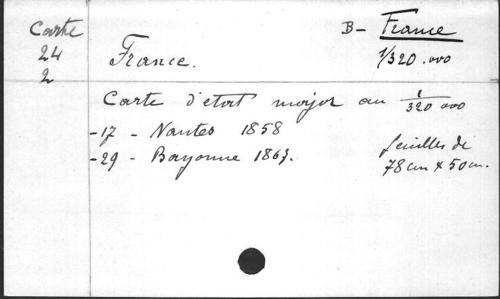 Carte
24
2
B - France
1/320.000
France.
Carte d'état major au 1/320 000
- 17 - Nantes 1858
- 29 - Bayonne 1863.
feuilles de
78 cm x 50 cm.